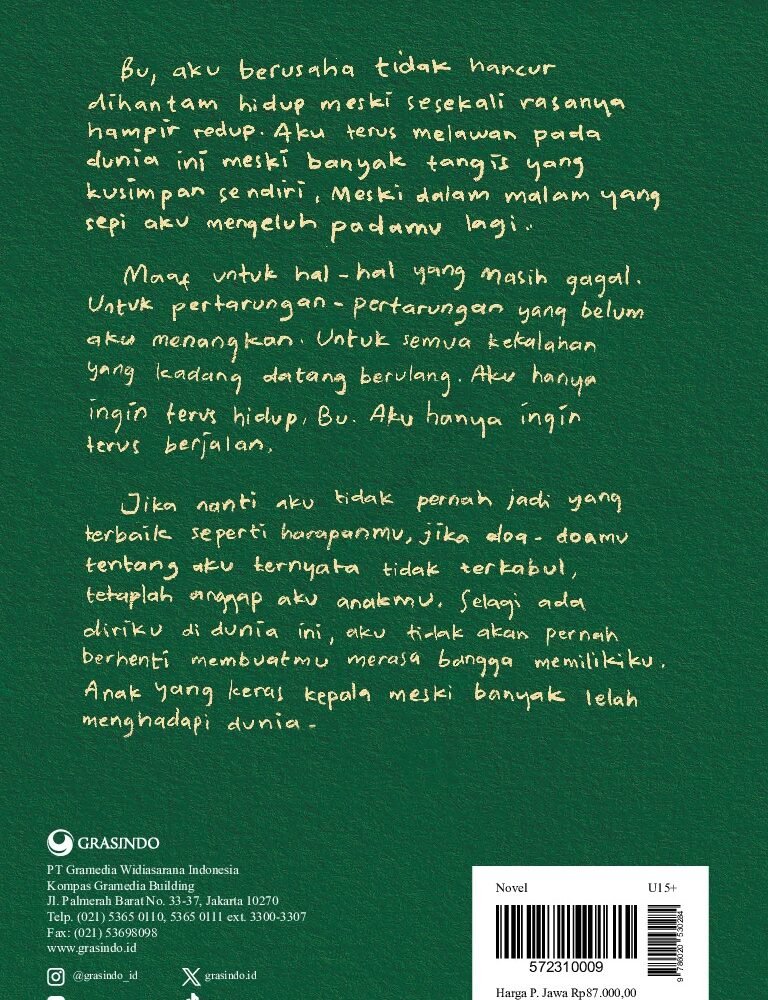 Bu, aku berusaha tidak hancur
dihantam hidup meski sesekali rasanya
hampir redup. Aku terus melawan pada
dunia ini meski banyak tangis yang
kusimpan sendiri. Meski dalam malam yang
sepi aku mengeluh padamu lagi..
Maaf untuk hal-hal yang masih gagal.
Untuk pertarungan-pertarungan yang belum
aku menangkan. Untuk semua kekalahan
yang kadang datang berulang. Aku hanya
ingin terus hidup, Bu. Aku hanya ingin
terus berjalan.
Jika nanti aku tidak pernah jadi yang
terbaik seperti harapanmu, jika doa-doamu
tentang aku ternyata tidak terkabul,
tetaplah anggap aku anakmu. Selagi ada
diriku di dunia ini, aku tidak akan pernah
berhenti membuatmu merasa bangga memilikiku.
Anak yang keras kepala meski banyak lelah
menghadapi dunia-
GRASINDO
PT Gramedia Widiasarana Indonesia
Kompas Gramedia Building
Jl. Palmerah Barat No. 33-37, Jakarta 10270
Telp. (021) 5365 0110, 5365 0111 ext. 3300-3307
Fax: (021) 53698098
www.grasindo.id
@grasindo_id
grasindo.id
Novel U15+
572310009
9 786020 530284
Harga P. Jawa Rp87.000,00